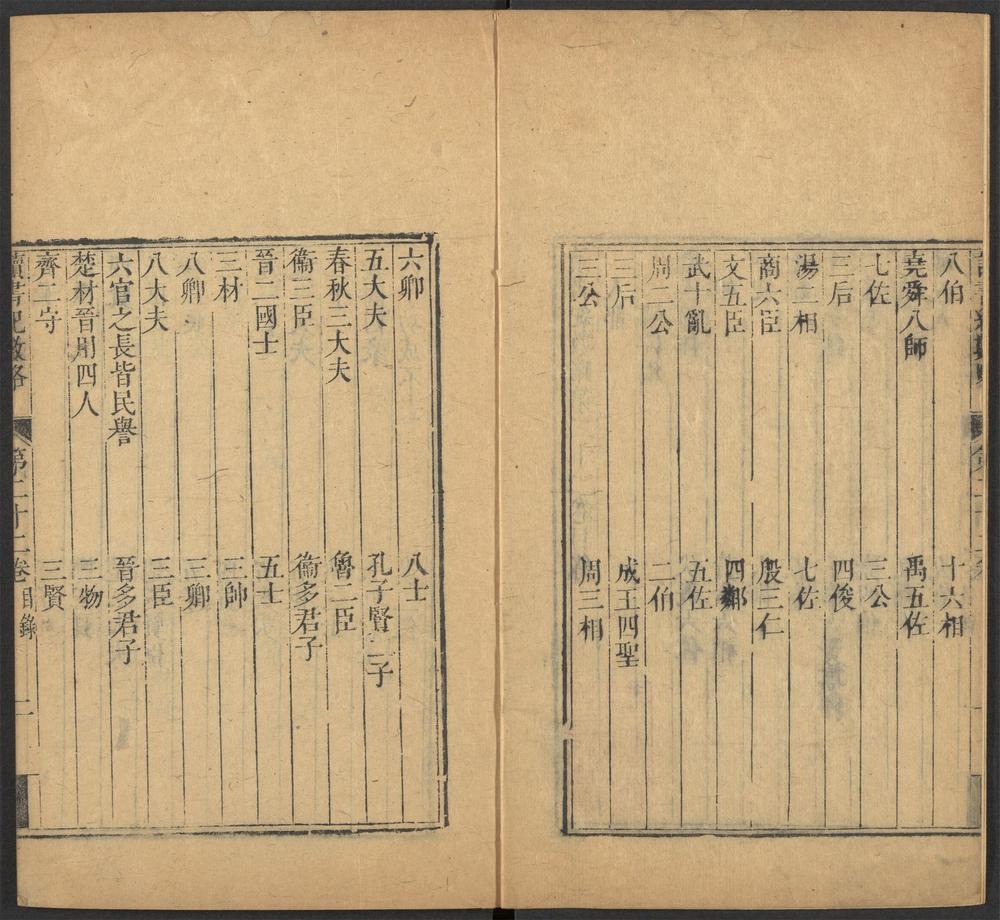 八伯 十六相
堯舜八師 禹五佐
七佐 三公
三后 四俊
湯二相 七佐
商六臣 殷三仁
文五臣 四鄰
武十亂 五佐
周二公 二伯
三后 成王四聖
三公 周三相
六卿 八士
五大夫 孔子賢二子
春秋三大夫 魯二臣
衞三臣 衞多君子
晉二國士 五士
三材 三帥
八卿 三卿
八大夫 三臣
六官之長皆民譽 晉多君子
楚材晉用四人 三物
齊二守 三賢
讀書記數略 第二十二卷目錄 二